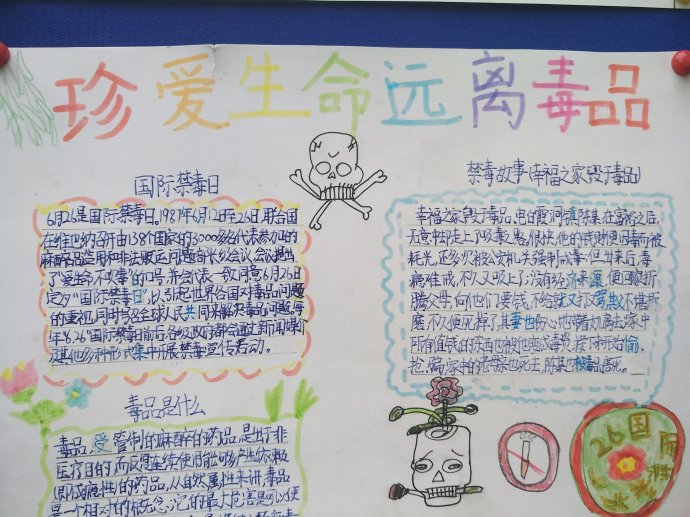 珍爱生命远离毒品
国际禁毒日
6月26是国际禁毒日。1987年6月12日至26日,联合国
在维也纳召开由138个国家的3000多名代表参加的
麻醉品滥用和非法贩运问题部长级会议,会议提出
了"爱生命,不吸毒"的口号,并会代表一致同意6月26日
定为"国际禁毒日",以引起世界各国对毒品问题
的重视,同时号召全球人民共同来解决毒品问题。每
年"6.26"国际禁毒日前后,各级政府都会通过新闻媒介
及其他多种形式集中开展禁毒宣传活动。
毒品是什么
毒品,受管制的麻醉的药品,是出于非
医疗目的而反复连续使用能够产生依赖
(即成瘾性)的药品,从自然属性来讲,毒品
是一个相对的概念,它的最大危害是可以使
禁毒故事(幸福之家毁于毒品)
幸福之家毁于毒品,电白霞洞镇陈某在富裕之后,
无意中陡上了吸毒之恶,很快,他的钱财便因毒而被
耗光,还多次被公安机关强制戒毒,但出来后,毒
瘾难戒,不久又吸上了,没有经济来源,便回家折
腾父母,向他们要钱,不给就又打又骂,父不堪折
磨,不久便死掉了,其妻也伤心地带着幼离去,家中
所有值钱的东西也被他变成毒资,接下来开始偷、
抢、骗,家中的老母亲也死去,陈某也被毒品害死。
26国际
禁